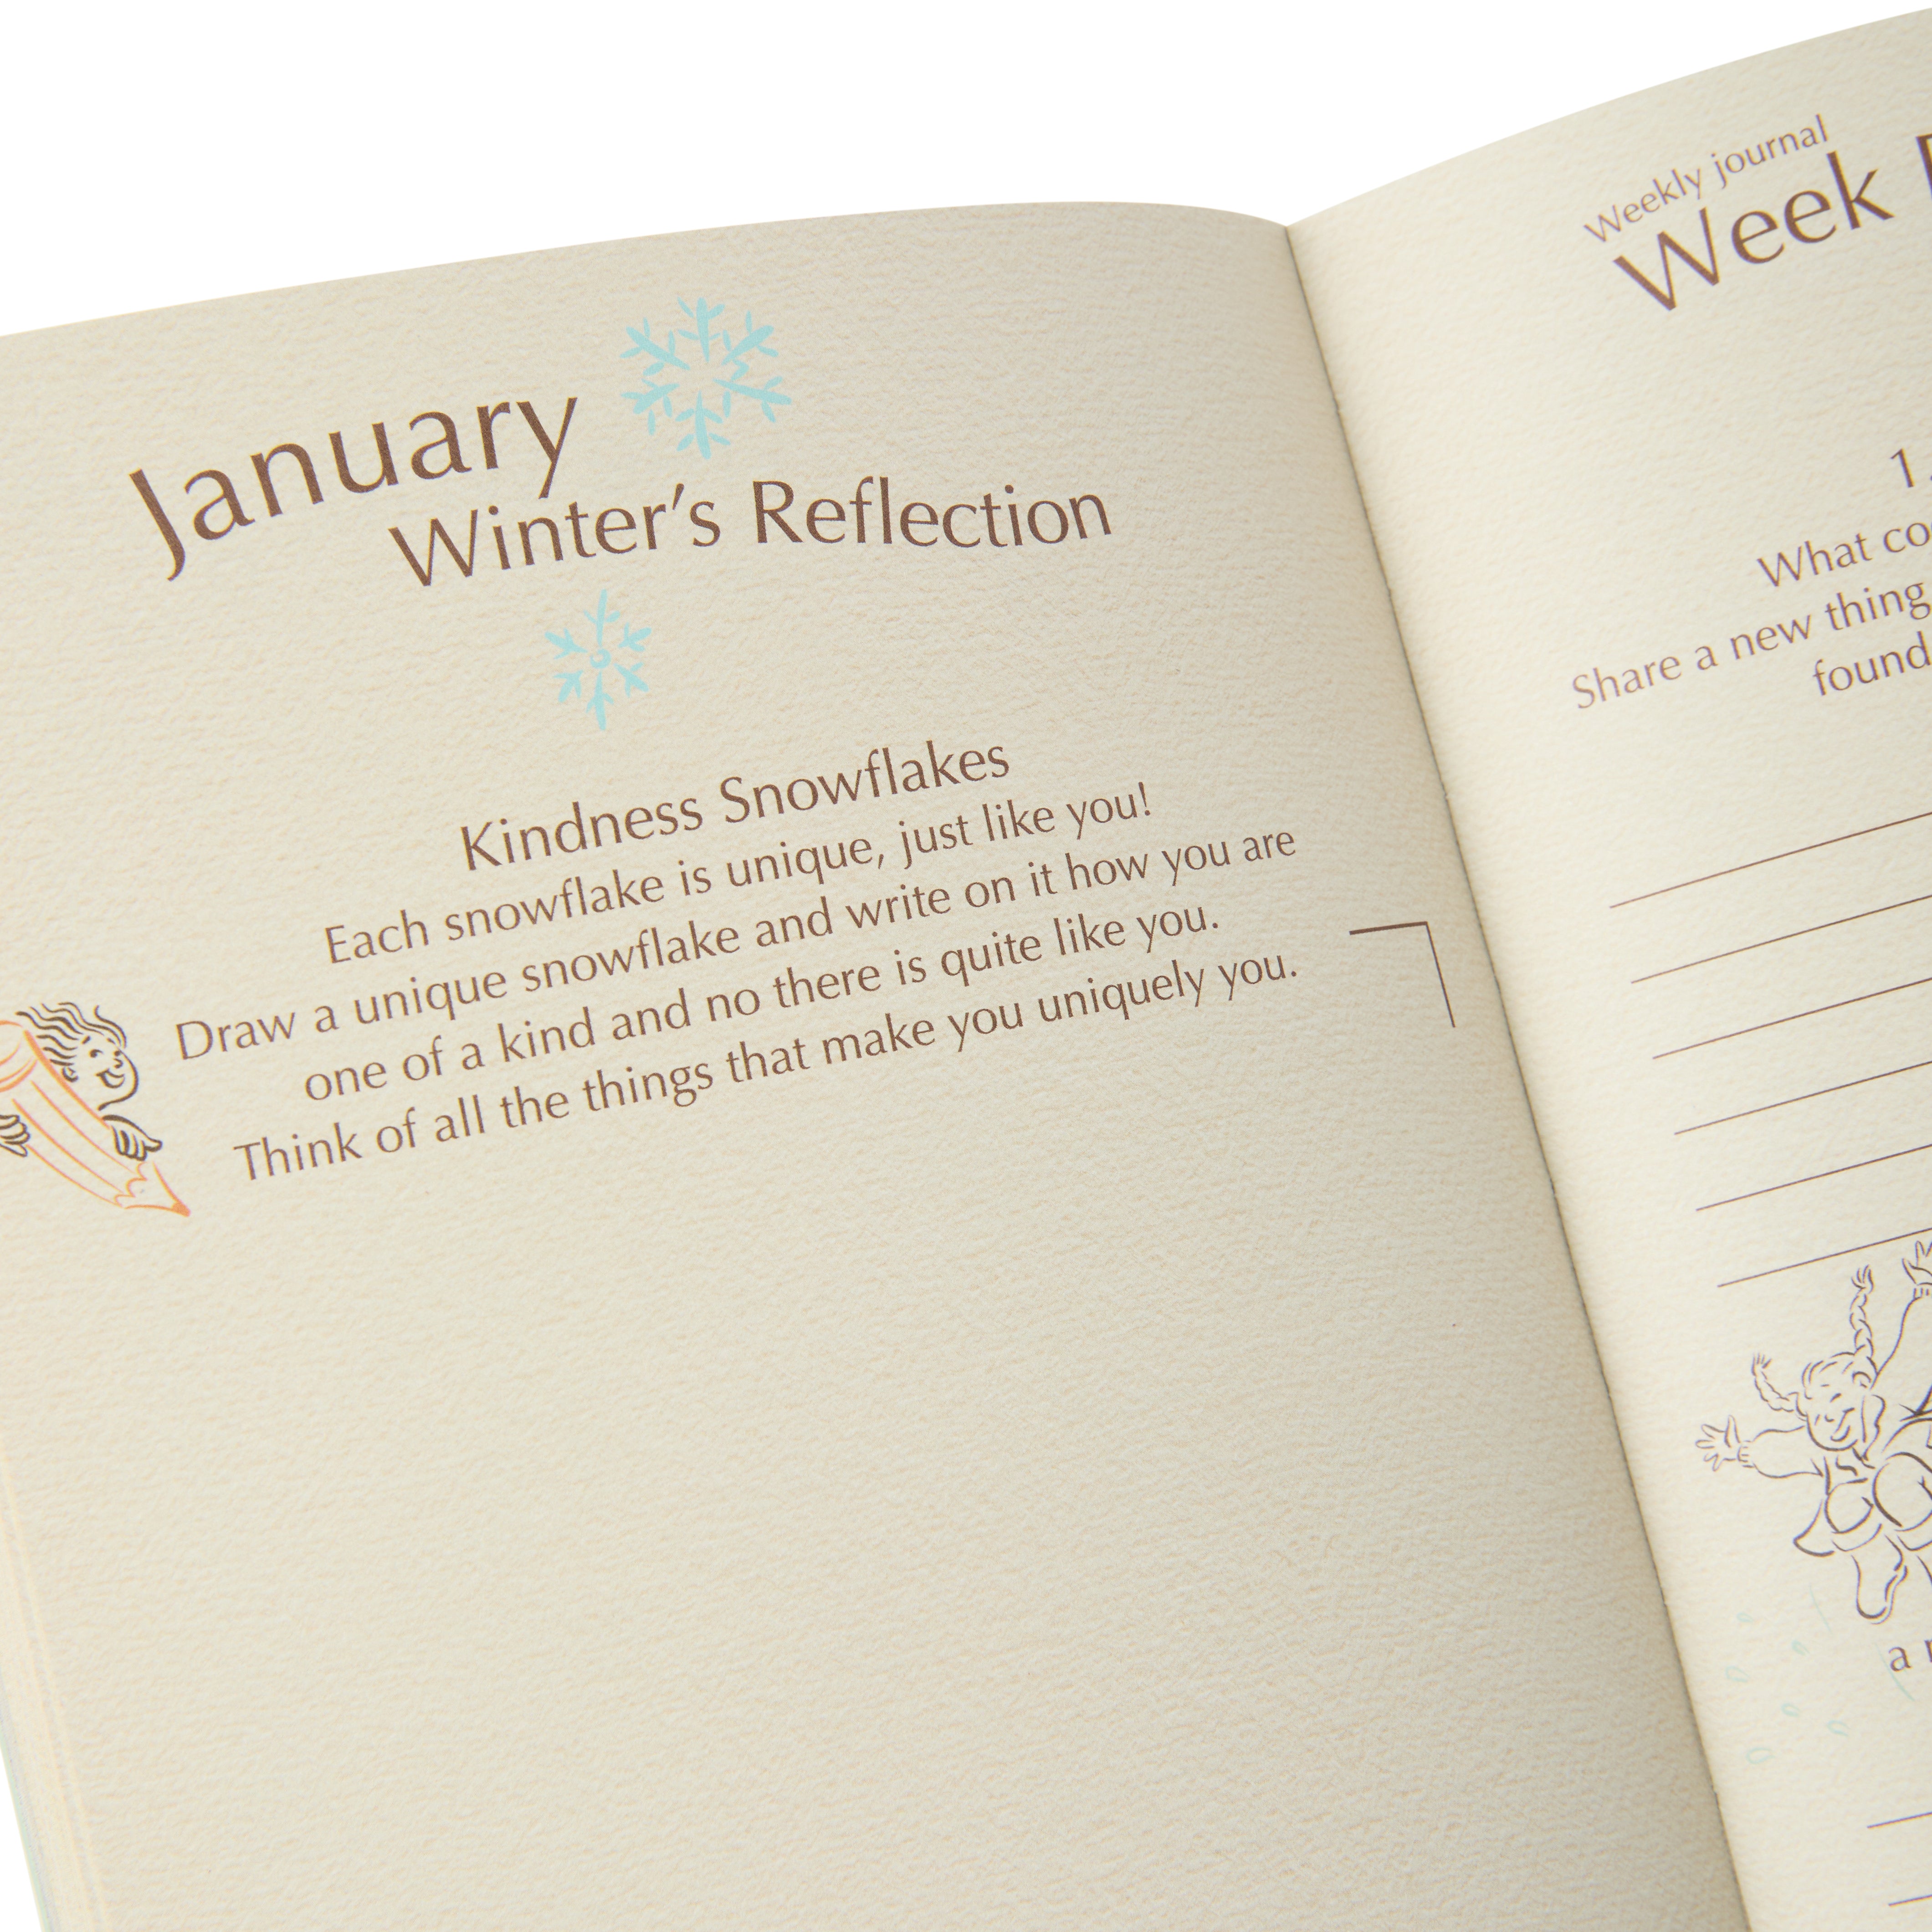 January
Winter's Reflection
Kindness Snowflakes
Each snowflake is unique, just like you!
Draw a unique snowflake and write on it how you are
one of a kind and no there is quite like you.
Think of all the things that make you uniquely you.
Weekly journal
Week
1.
What
Share a new thing
found
a